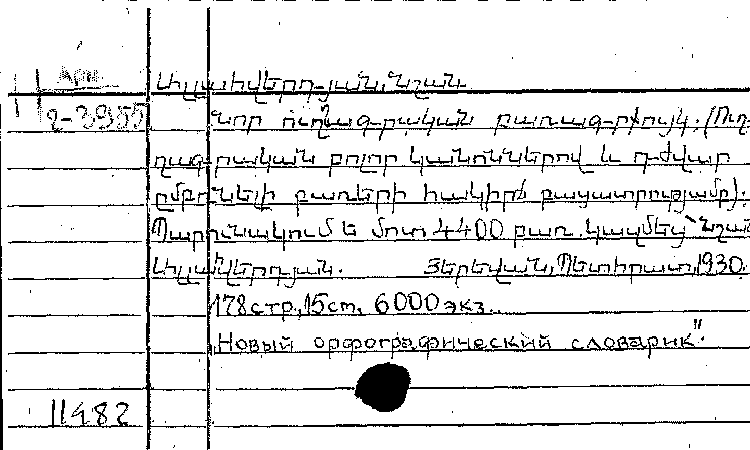 Арм
Ալլահվերդյան, Նշան.
2-3955
Նոր ուղղագրական բառագրքույկ: (Ուղ-
ղագրական բոլոր կանոններով և դժվար
ըմբռնելի բառերի հակիրճ բացատրությամբ):
Պարունակում ե մոտ 4400 բառ. կազմեց՝ Նշան
Ալլահվերդյան. Յերեվան, Պետհրատ, 1930.
178 стр., 15 cm, 6000 экз.
"Новый орфографический словарик".
11482